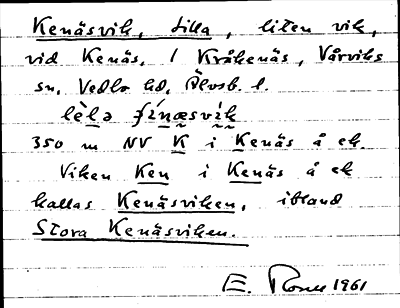 Kenäsvik, Lilla, liten vik,
vid Kenäs, / Kråkenäs, Vårviks
sn, Vedbo hd, Älvsb. l.
lèl̲a fín̲æsvík
350 m NV K̲ i Kenäs å ek.
Viken Ken i Kenäs å ek
kallas Kenäsviken, ibland
Stora Kenäsviken.
E. 1961